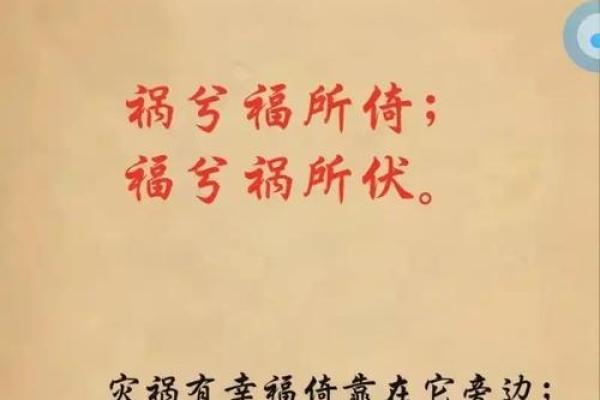 祸兮福所倚；
福兮祸所伏。
灾祸有幸福倚靠在它旁边；